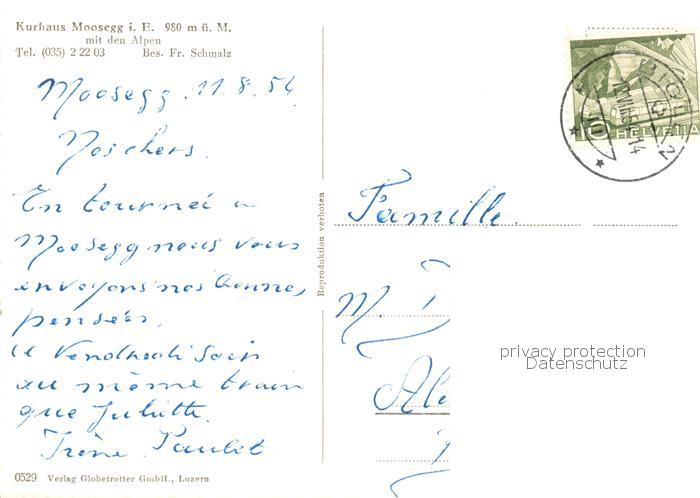 Kurhaus Moosegg i. E. 980 m ü. M.
mit den Alpen
Tel. (035) 2 22 03 Bes. Fr. Schmalz
Moosegg. 11.8.54
Nos chers.
En tournée a
Moosegg nous vous
envoyons nos bonnes
pensées,
a Vendredi soir
au même train
que Juliette.
Irène Paulet
0529 Verlag Globetrotter GmbH., Luzern
Reproduktion verboten
10 HELVETIA
Famille
M.
privacy protection
Datenschutz